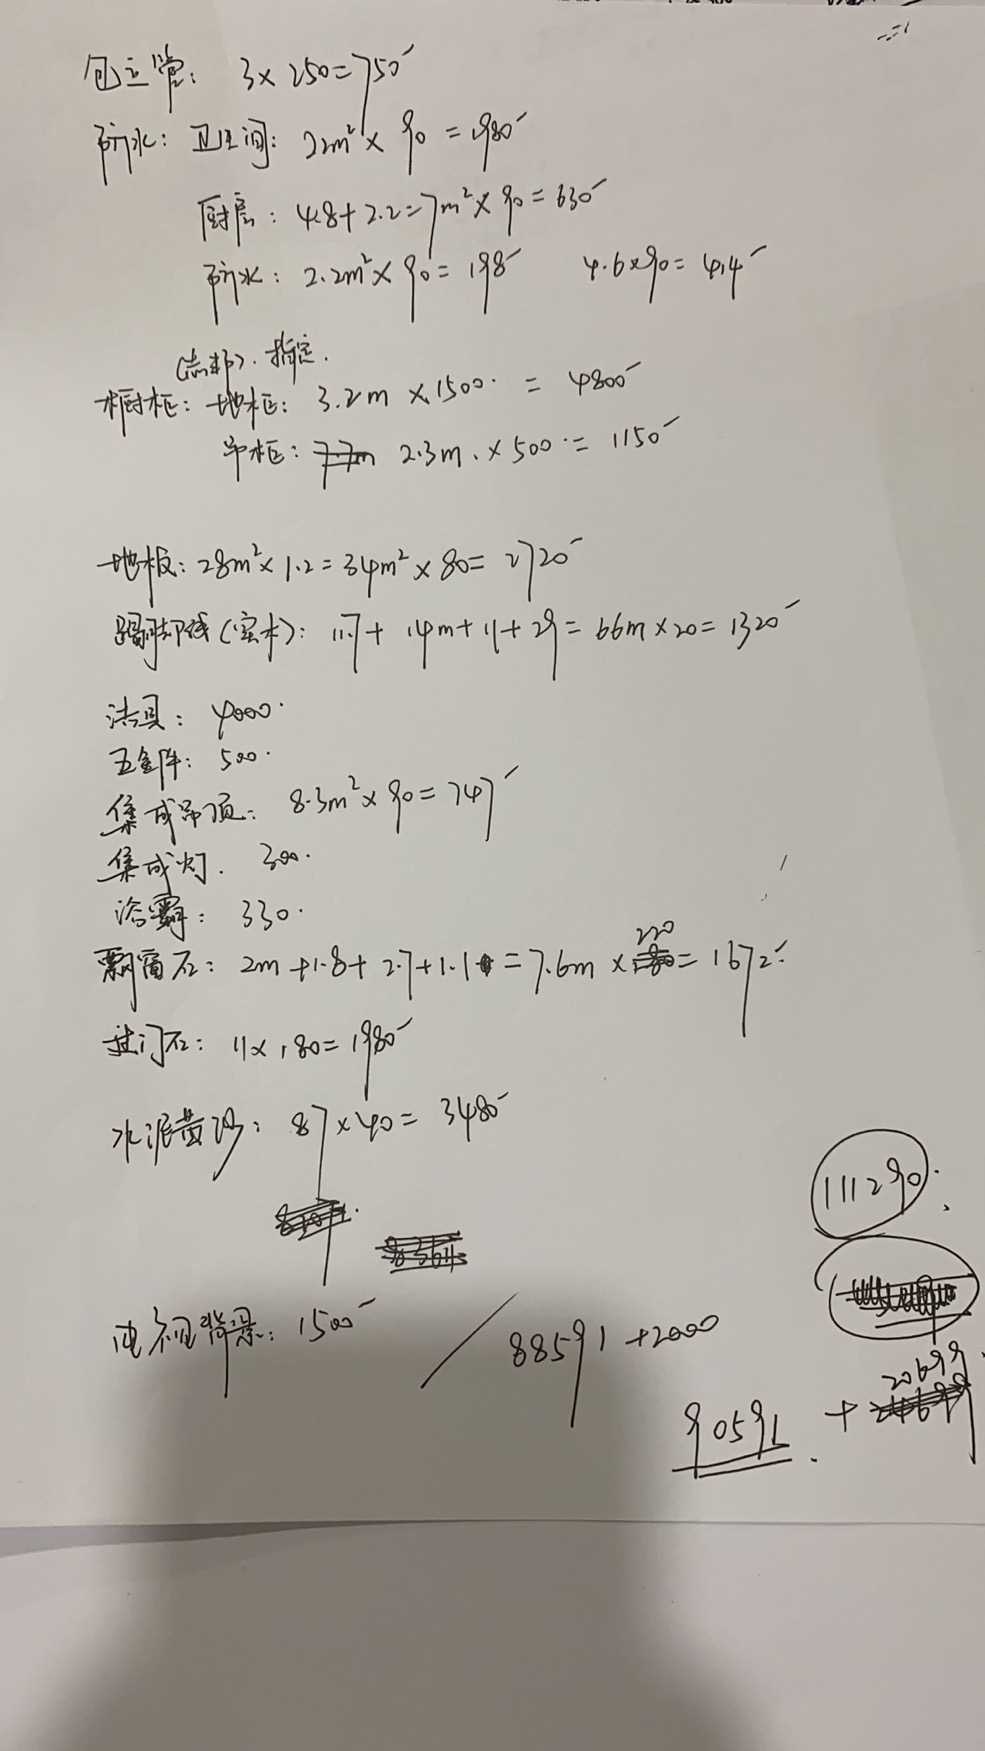 包立管: 3×250=750
防水: 卫生间: 22m²×90=1980
厨房: 4.8+2.2=7m²×90=630
防水: 2.2m²×90=198 4.6×90=414
(志邦). 指定.
橱柜: 地柜: 3.2m×1500.=4800
吊柜: 2.3m.×500.=1150
地板: 28m²×1.2=34m²×80=2720
踢脚线(实木): 11.7+14m+11+29=66m×20=1320
洁具: 4000.
五金件: 500.
集成吊顶: 8.3m²×90=747
集成灯. 300.
浴霸: 330.
飘窗石: 2m+1.8+2.7+1.1=7.6m×220=1672
过门石: 11×180=1980
水泥黄沙: 87×40=3480
111290.
电视背景: 1500
88591+2000
90591.+20699